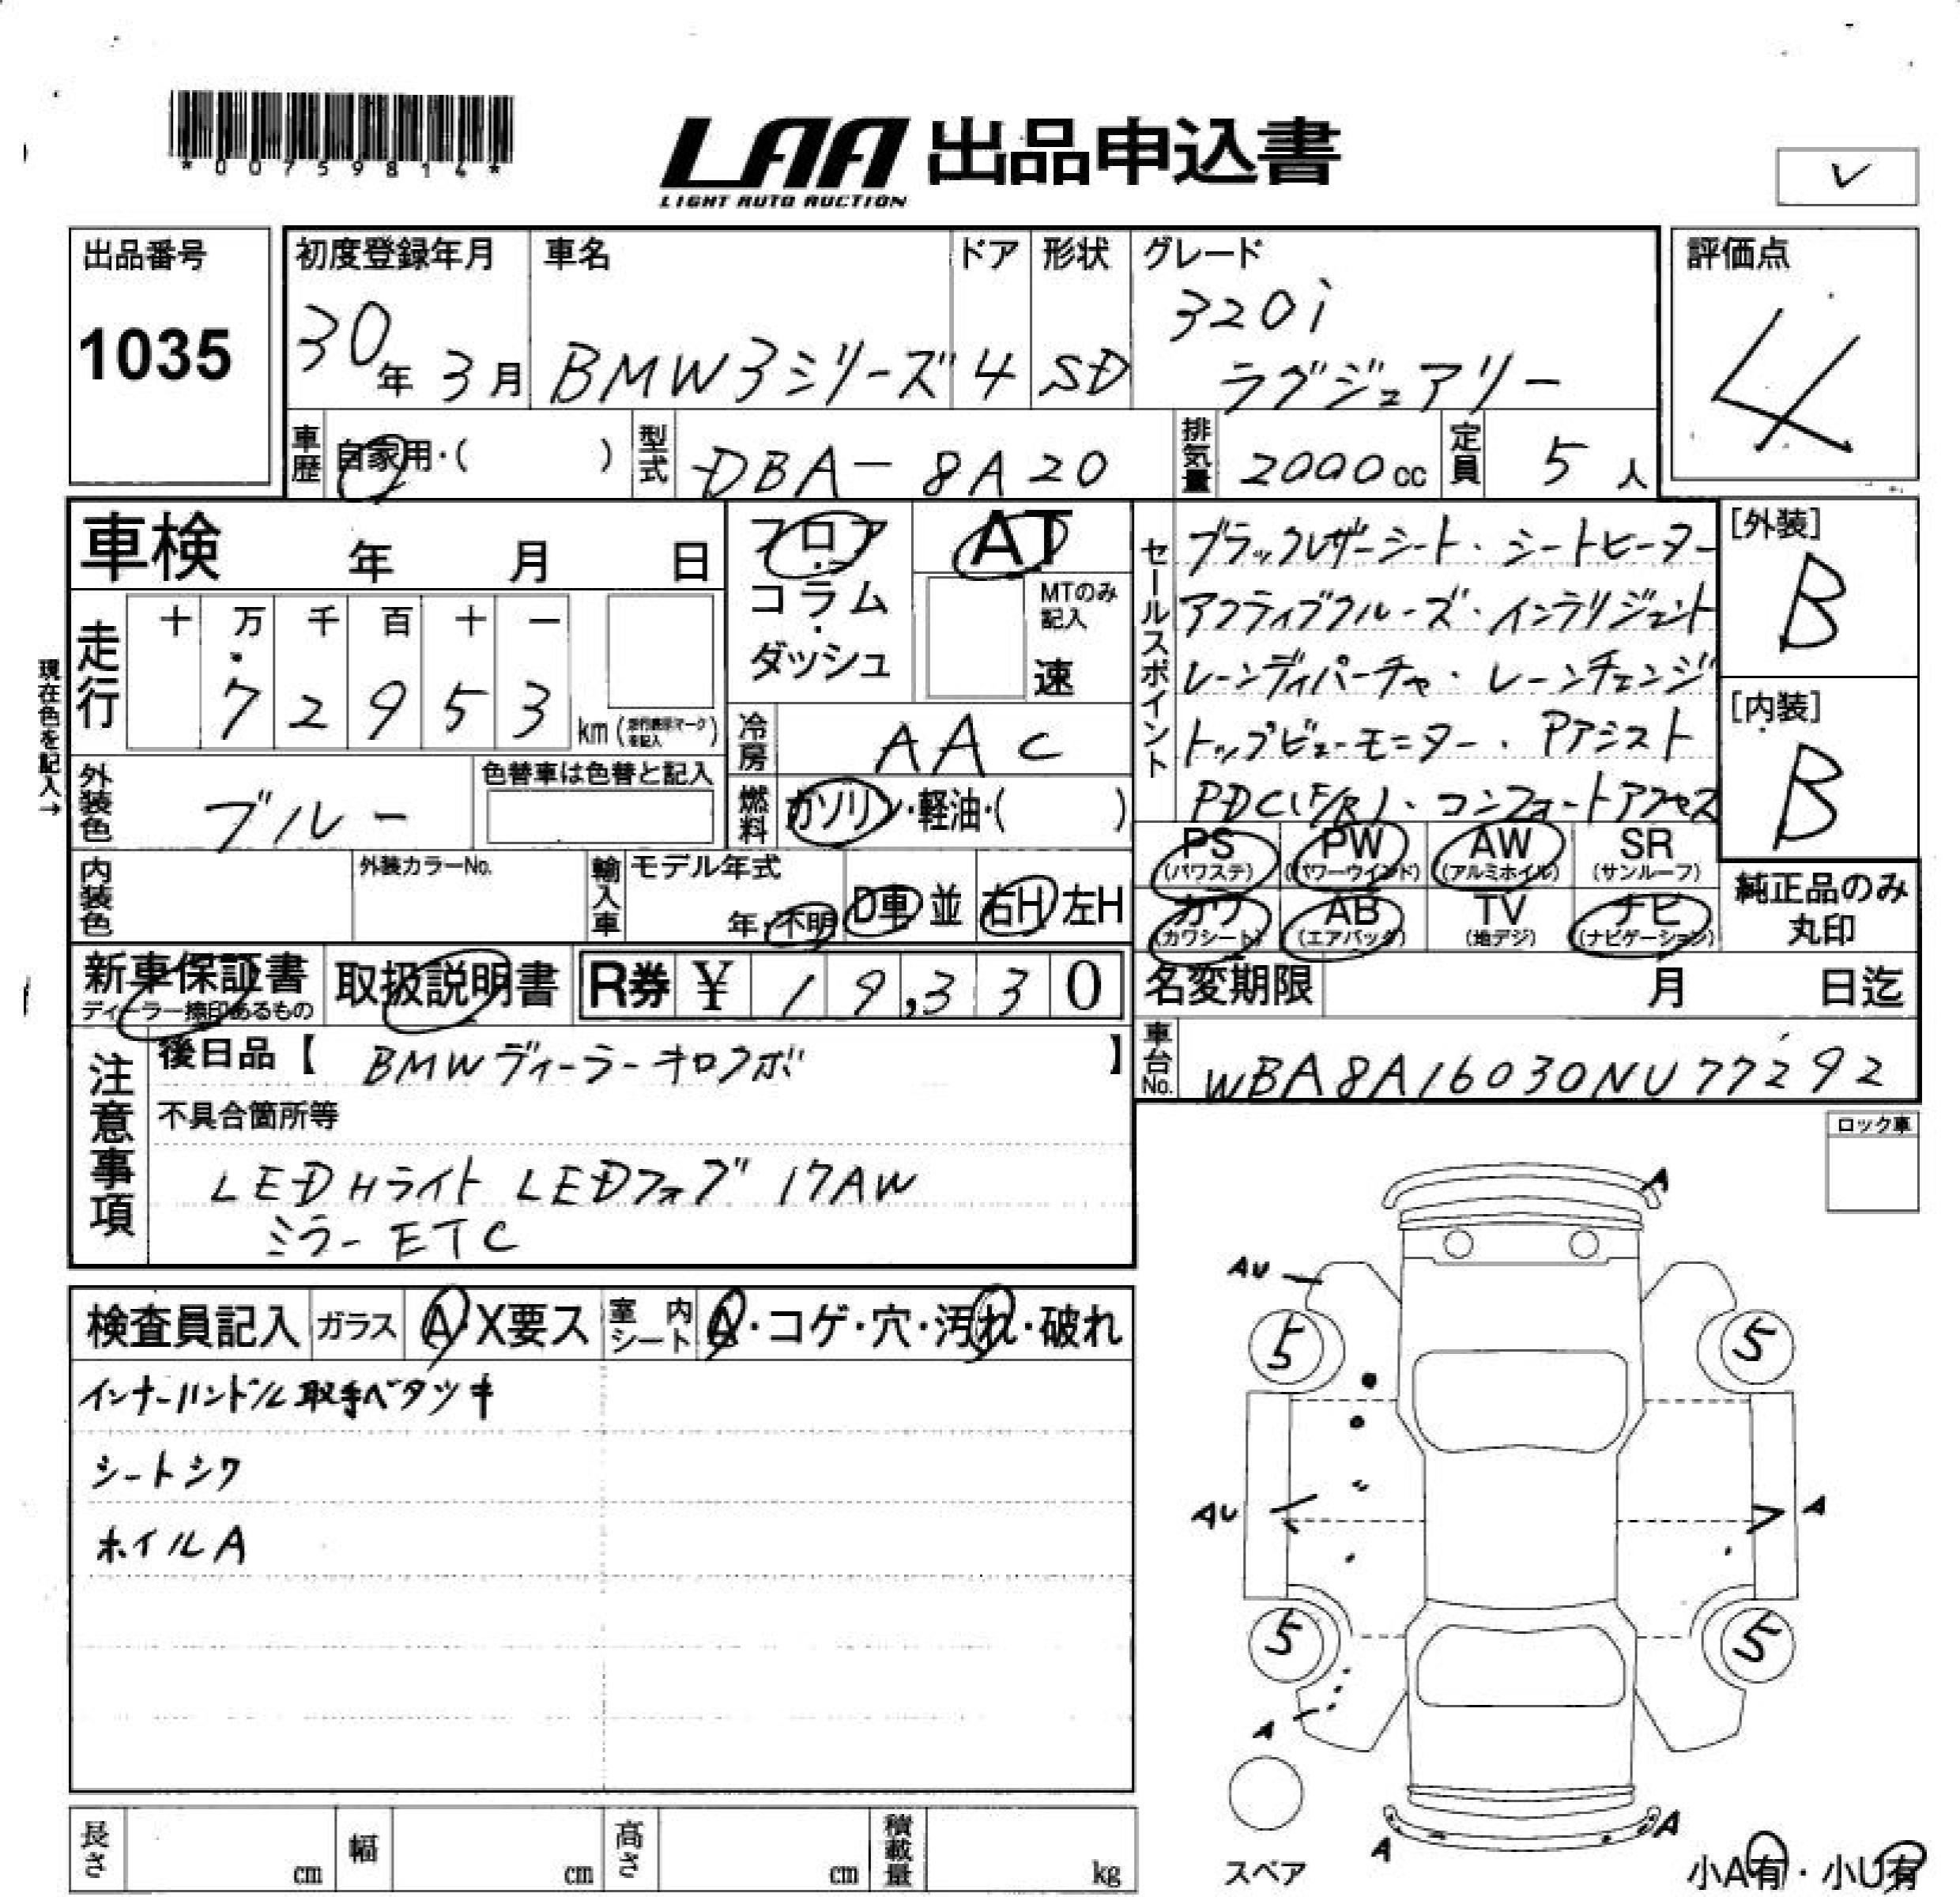 *00759814*
LAA 出品申込書
LIGHT AUTO AUCTION
レ
出品番号
1035
初度登録年月
30年 3月
車名
BMW3シリーズ
ドア
4
形状
SD
グレード
320i
ラグジュアリー
評価点
4
車歴 自家用・( )
型式 DBA-8A20
排気量 2000cc
定員 5人
車検 年 月 日
フロア・コラム・ダッシュ
AT
MTのみ記入
速
セールスポイント
ブラックレザーシート・シートヒーター
アクティブクルーズ・インテリジェント
レーンディパーチャ・レーンチェンジ
トップビューモニター・Pアシスト
PDC(F/R)・コンフォートアクセス
[外装]
B
[内装]
B
現在色を記入→
走行
十 万 千 百 十 一
7 2 9 5 3 km
冷房 AAC
外装色 ブルー
色替車は色替と記入
燃料 ガソリン・軽油・( )
内装色
外装カラーNo.
輸入車
モデル年式
年・不明
D車 並
右H 左H
PS (パワステ)
PW (パワーウインド)
AW (アルミホイル)
SR (サンルーフ)
カワ (カワシート)
AB (エアバック)
TV (地デジ)
ナビ (ナビゲーション)
純正品のみ
丸印
新車保証書
ディーラー捺印あるもの
取扱説明書
R券 ¥ 19,330
名変期限 月 日迄
車台No. WBA8A16030NU77292
注意事項
後日品【 BMWディーラーキロクボ 】
不具合箇所等
LED Hライト LEDフォグ 17AW
ミラーETC
ロック車
検査員記入
ガラス A・X要ス
室内シート A・コゲ・穴・汚れ・破れ
インナーハンドル取手ベタツキ
シートシワ
ホイルA
A
AU
5 5
AU A
5 5
A
A A
スペア
小A有・小U有
長さ cm
幅 cm
高さ cm
積載量 kg